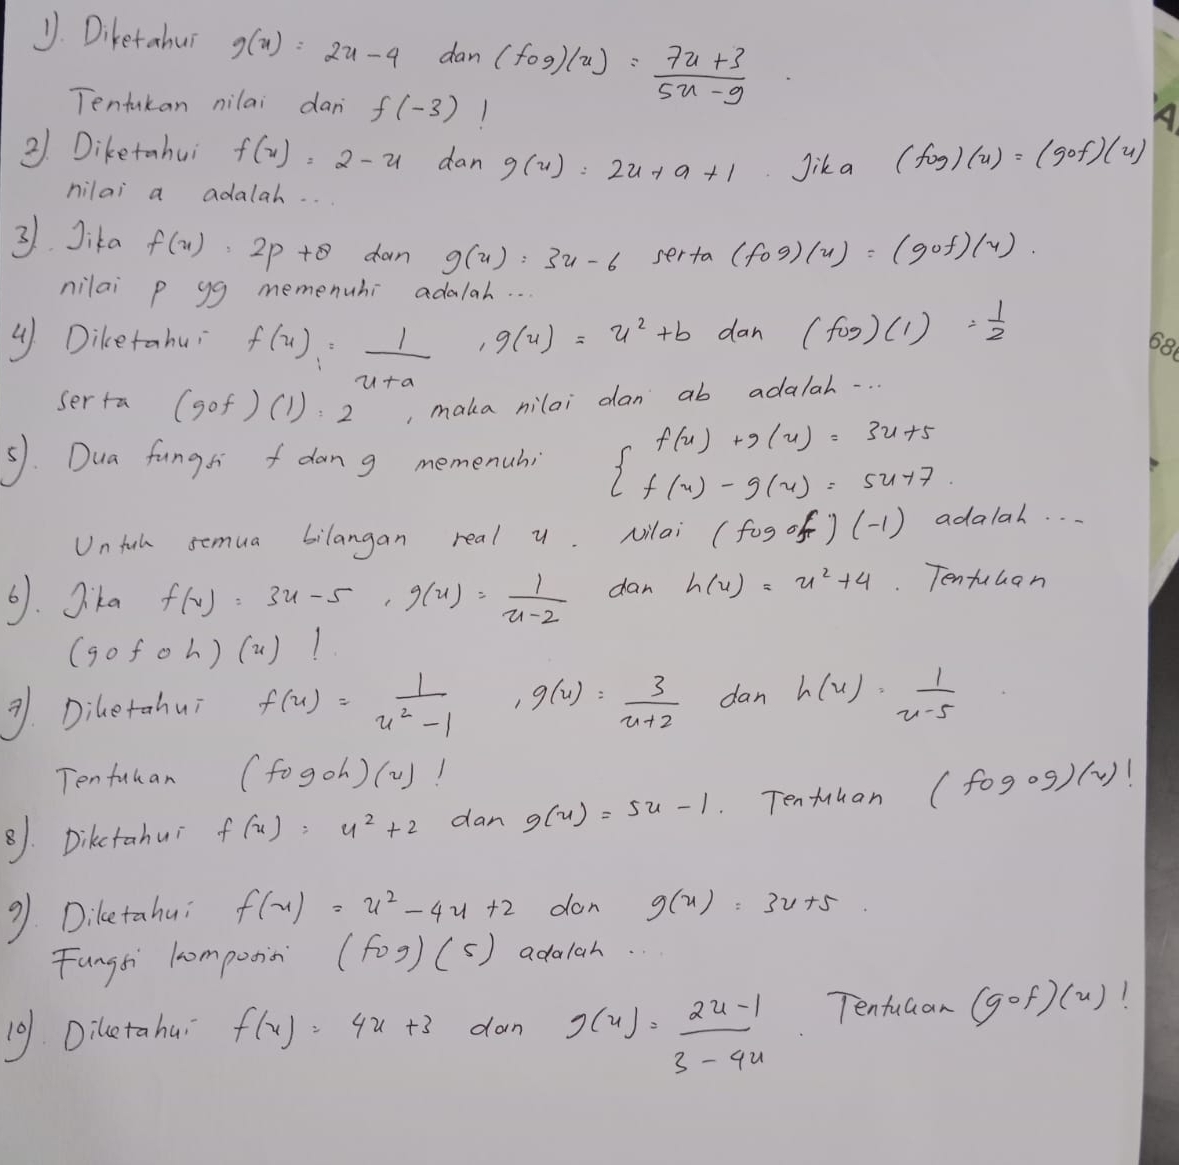 1). Diketahui g(x) = 2x - 4 dan (fog)(x) = (7x + 3)/(5x - 9).
Tentukan nilai dari f(-3) !
2) Diketahui f(x) = 2 - x dan g(x) = 2x + a + 1. Jika (fog)(x) = (gof)(x)
nilai a adalah ...
3). Jika f(x) = 2p + 8 dan g(x) = 3x - 6 serta (fog)(x) = (gof)(x).
nilai p yg memenuhi adalah ...
4) Diketahui f(x) = 1/(x + a), g(x) = x² + b dan (fog)(1) = 1/2
serta (gof)(1) = 2, maka nilai dari ab adalah ...
5). Dua fungsi f dan g memenuhi { f(x) + g(x) = 3x + 5
f(x) - g(x) = 5x + 7.
Untuk semua bilangan real x. Nilai (fogof)(-1) adalah ...
6). Jika f(x) = 3x - 5, g(x) = 1/(x - 2) dan h(x) = x² + 4. Tentukan
(gofoh)(x) !
7). Diketahui f(x) = 1/(x² - 1), g(x) = 3/(x + 2) dan h(x) = 1/(x - 5).
Tentukan (fogoh)(x) !
8). Diketahui f(x) = x² + 2 dan g(x) = 5x - 1. Tentukan (fogog)(x) !
9) Diketahui f(x) = x² - 4x + 2 dan g(x) = 3x + 5.
Fungsi komposisi (fog)(5) adalah ...
10). Diketahui f(x) = 4x + 3 dan g(x) = (2x - 1)/(3 - 4x). Tentukan (gof)(x) !